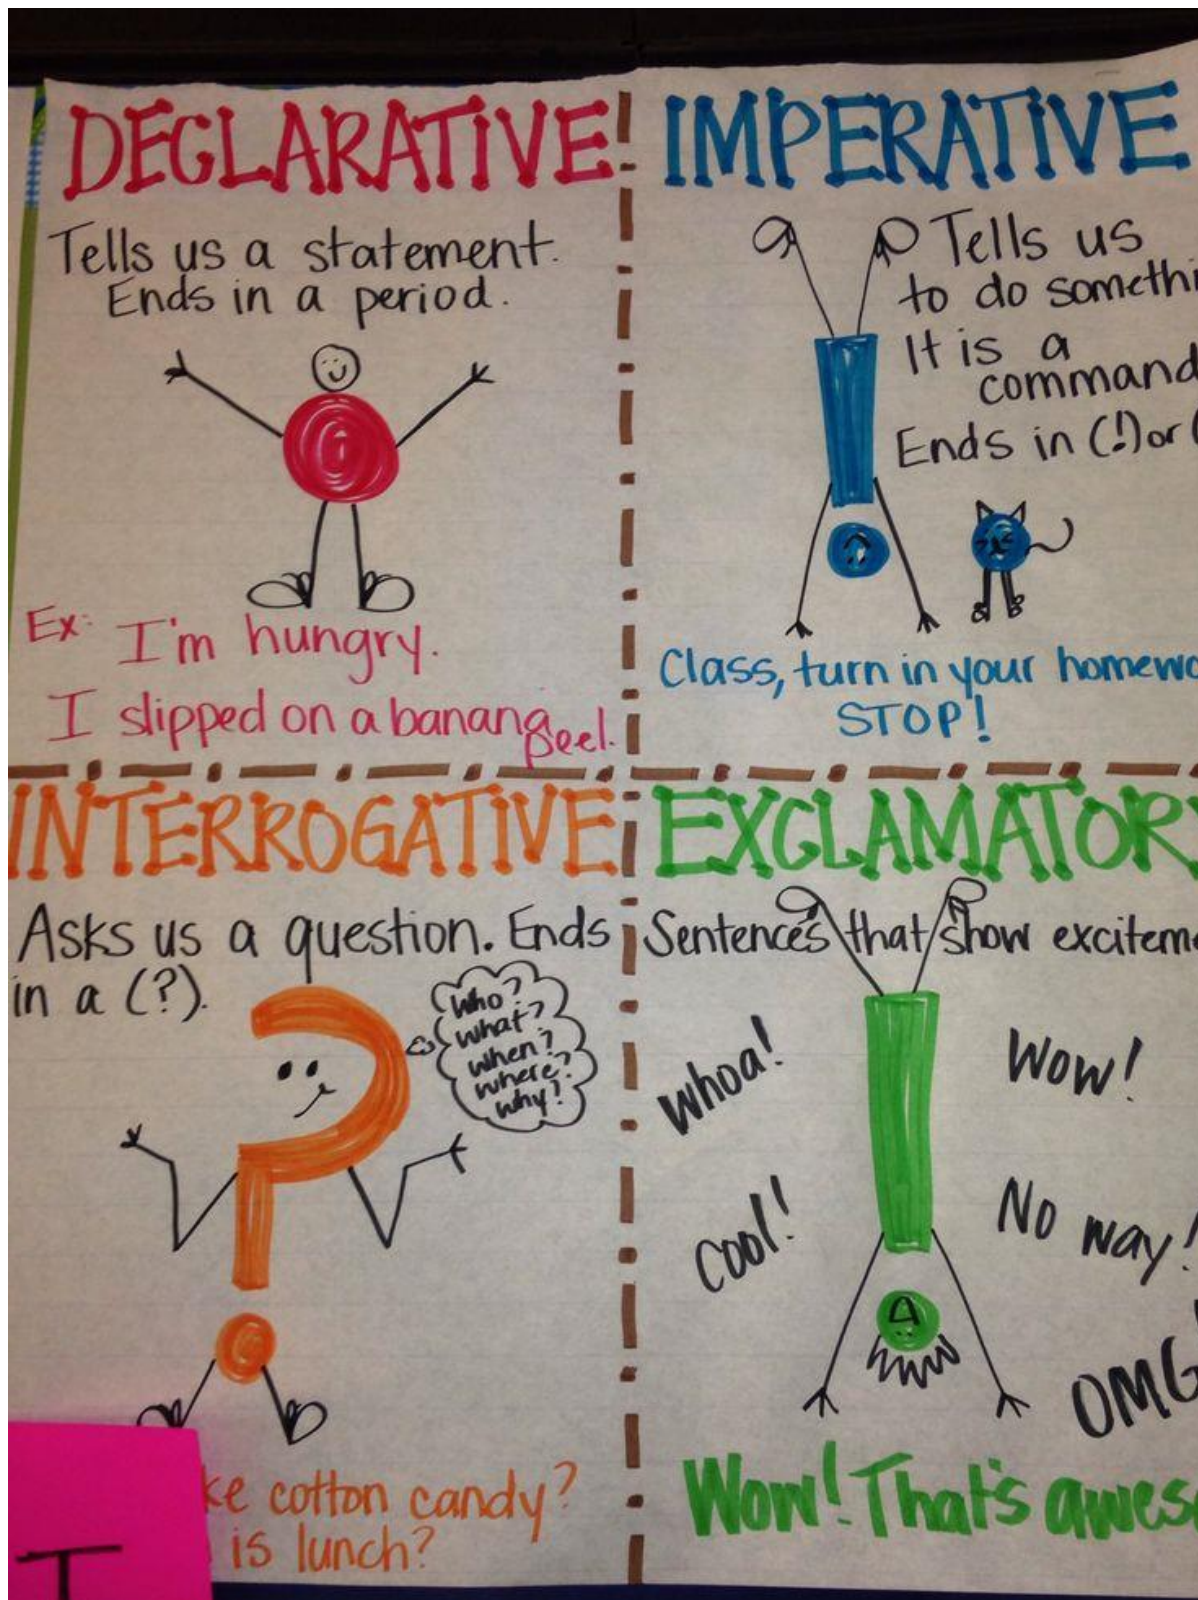 DECLARATIVE
Tells us a statement.
Ends in a period.
Ex: I'm hungry.
I slipped on a banana
peel.
IMPERATIVE
Tells us
to do somethi
It is a
command
Ends in (!) or (
Class, turn in your homewo
STOP!
INTERROGATIVE
Asks us a question. Ends
in a (?).
Who?
What?
When?
Where?
Why?
ke cotton candy?
is lunch?
I
EXCLAMATORY
Sentences that show exciteme
whoa!
Wow!
cool!
No way!
OMG
Wow! That's awes